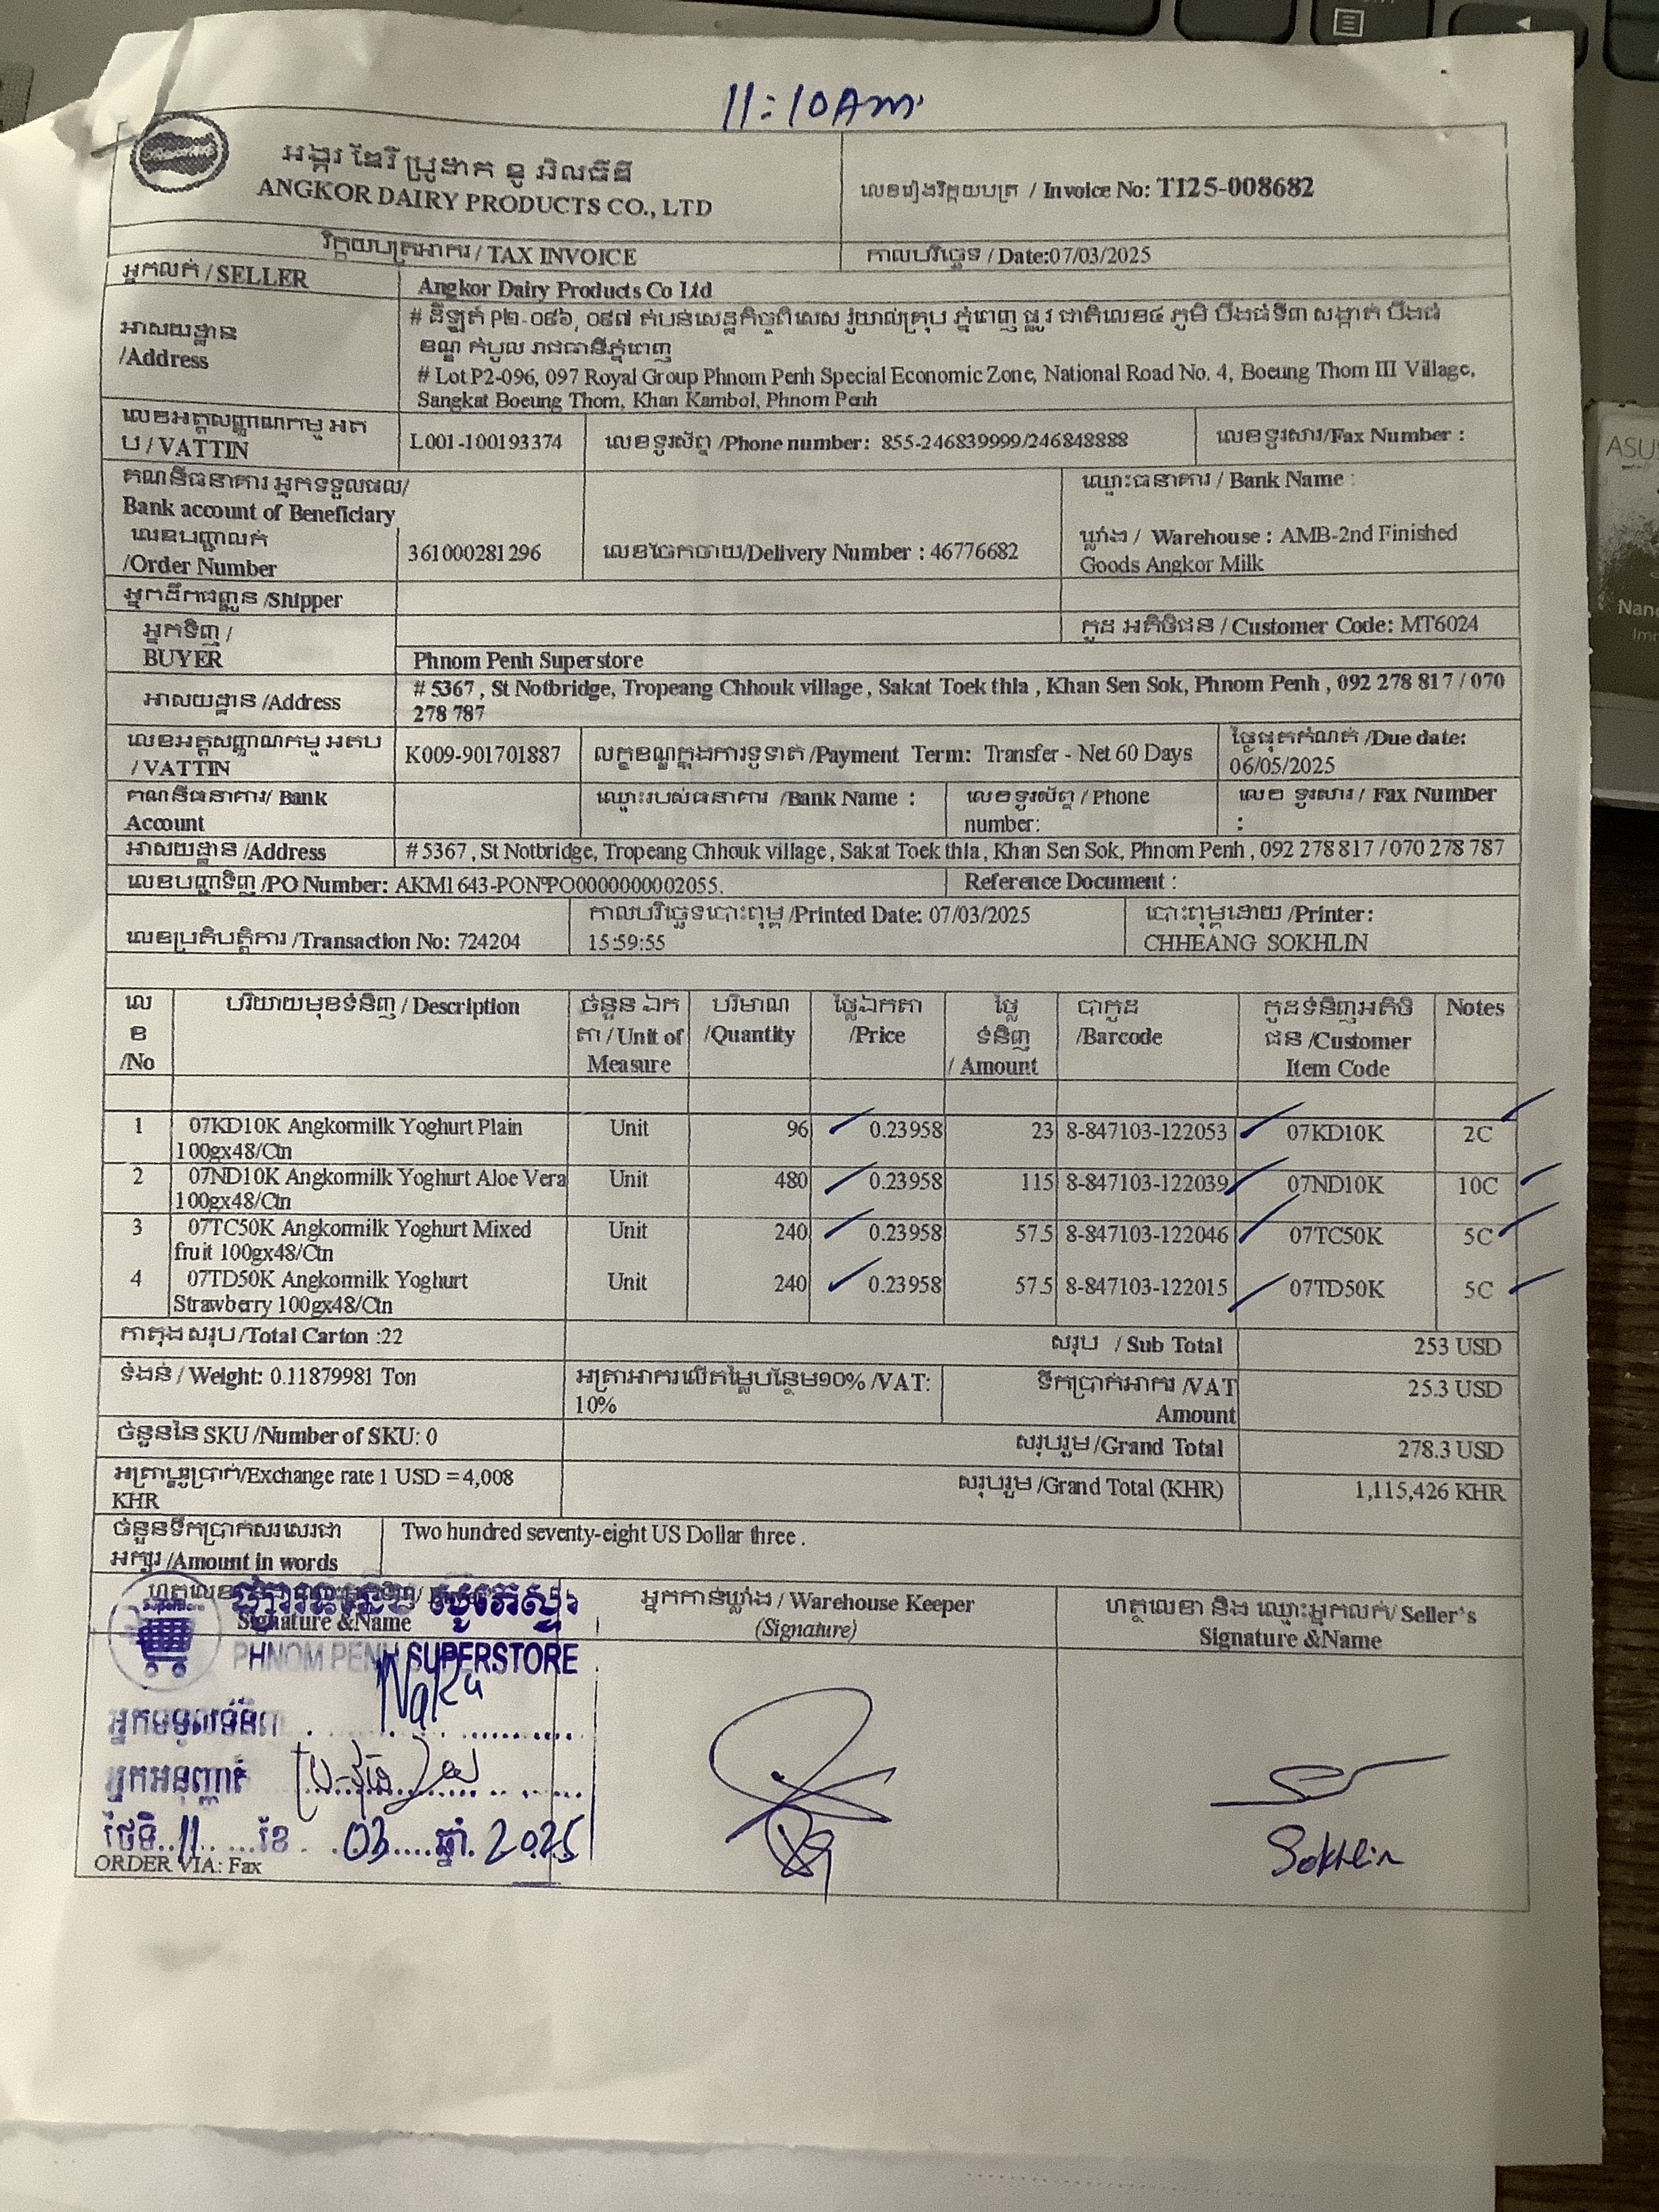 11:10AM
អង្គរ ដែរី ប្រូដាក ខូ អិលធីឌី
ANGKOR DAIRY PRODUCTS CO., LTD
លេខរៀងវិក្កយបត្រ / Invoice No: TI25-008682
វិក្កយបត្រអាករ / TAX INVOICE
កាលបរិច្ឆេទ / Date:07/03/2025
អ្នកលក់ / SELLER
Angkor Dairy Products Co Ltd
អាសយដ្ឋាន
/Address
# ដីឡូត៍ P២-០៩៦, ០៩៧ តំបន់សេដ្ឋកិច្ចពិសេស រ៉ូយ៉ាល់គ្រុប ភ្នំពេញ ផ្លូវ ជាតិលេខ៤ ភូមិ បឹងធំទី៣ សង្កាត់ បឹងធំ
ខណ្ឌ កំបូល រាជធានីភ្នំពេញ
# Lot P2-096, 097 Royal Group Phnom Penh Special Economic Zone, National Road No. 4, Boeung Thom III Village,
Sangkat Boeung Thom, Khan Kambol, Phnom Penh
លេខអត្តសញ្ញាណកម្ម អត
ប / VATTIN
L001-100193374
លេខទូរស័ព្ទ /Phone number: 855-246839999/246848888
លេខទូរសារ/Fax Number :
គណនីធនាគារ អ្នកទទួលផល/
Bank account of Beneficiary
ឈ្មោះធនាគារ / Bank Name :
លេខបញ្ជាលក់
/Order Number
361000281296
លេខចែកចាយ/Delivery Number : 46776682
ឃ្លាំង / Warehouse : AMB-2nd Finished
Goods Angkor Milk
អ្នកដឹកជញ្ជូន /Shipper
អ្នកទិញ /
BUYER
កូដ អតិថិជន / Customer Code: MT6024
Phnom Penh Superstore
អាសយដ្ឋាន /Address
# 5367 , St Notbridge, Tropeang Chhouk village , Sakat Toek thla , Khan Sen Sok, Phnom Penh , 092 278 817 / 070
278 787
លេខអត្តសញ្ញាណកម្ម អតប
/ VATTIN
K009-901701887
លក្ខខណ្ឌក្នុងការទូទាត់ /Payment Term: Transfer - Net 60 Days
ថ្ងៃផុតកំណត់ /Due date:
06/05/2025
គណនីធនាគារ/ Bank
Account
ឈ្មោះរបស់ធនាគារ /Bank Name :
លេខទូរស័ព្ទ / Phone
number:
លេខ ទូរសារ / Fax Number
:
អាសយដ្ឋាន /Address
# 5367 , St Notbridge, Tropeang Chhouk village , Sakat Toek thla , Khan Sen Sok, Phnom Penh , 092 278 817 / 070 278 787
លេខបញ្ជាទិញ /PO Number: AKM1643-PONºPO0000000002055.
Reference Document :
លេខប្រតិបត្តិការ /Transaction No: 724204
កាលបរិច្ឆេទបោះពុម្ព /Printed Date: 07/03/2025
15:59:55
បោះពុម្ពដោយ /Printer:
CHHEANG SOKHLIN
លេ
ខ
/No
បរិយាយមុខទំនិញ / Description
ចំនួន ឯក
តា / Unit of
Measure
បរិមាណ
/Quantity
ថ្លៃឯកតា
/Price
ថ្លៃ
ទំនិញ
/ Amount
បាកូដ
/Barcode
កូដទំនិញអតិថិ
ជន /Customer
Item Code
Notes
1 07KD10K Angkormilk Yoghurt Plain Unit 96 0.23958 23 8-847103-122053 07KD10K 2C
100gx48/Ctn
2 07ND10K Angkormilk Yoghurt Aloe Vera Unit 480 0.23958 115 8-847103-122039 07ND10K 10C
100gx48/Ctn
3 07TC50K Angkormilk Yoghurt Mixed Unit 240 0.23958 57.5 8-847103-122046 07TC50K 5C
fruit 100gx48/Ctn
4 07TD50K Angkormilk Yoghurt Unit 240 0.23958 57.5 8-847103-122015 07TD50K 5C
Strawberry 100gx48/Ctn
កាតុងសរុប /Total Carton :22
សរុប / Sub Total 253 USD
ទំងន់ / Weight: 0.11879981 Ton
អត្រាអាករលើតម្លៃបន្ថែម១០% /VAT:
10%
ទឹកប្រាក់អាករ /VAT
Amount
25.3 USD
ចំនួននៃ SKU /Number of SKU: 0
សរុបរួម /Grand Total 278.3 USD
អត្រាប្តូរប្រាក់/Exchange rate 1 USD = 4,008
KHR
សរុបរួម /Grand Total (KHR) 1,115,426 KHR
ចំនួនទឹកប្រាក់សរសេរជា
អក្សរ /Amount in words
Two hundred seventy-eight US Dollar three .
Signature &Name
PHNOM PENH SUPERSTORE
អ្នកកាន់ឃ្លាំង / Warehouse Keeper
(Signature)
ហត្ថលេខា និង ឈ្មោះអ្នកលក់/ Seller's
Signature &Name
អ្នកទទួលទំនិញ
អ្នកអនុញ្ញាត
ថ្ងៃទី..11.....ខែ . .03....ឆ្នាំ. 2025
Sokhlin
ORDER VIA: Fax